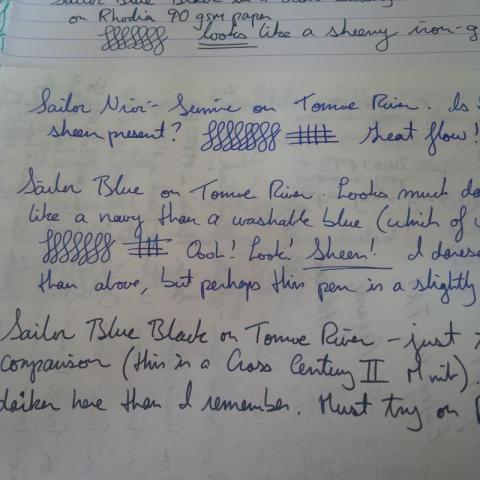 Sailor Blue Black
on Rhodia 90 gsm paper
looks like a sheeny iron-g
Sailor on Tomoe River. Is
sheen present? Great flow!
Sailor Blue on Tomoe River. Looks much da
like a navy than a washable blue (which of
Oooh! Look! Sheen! I dares
than above, but perhaps this pen is a slightly
Sailor Blue Black on Tomoe River - just
comparison (this is a Cross Century II M nib).
darker here than I remember. Must try on